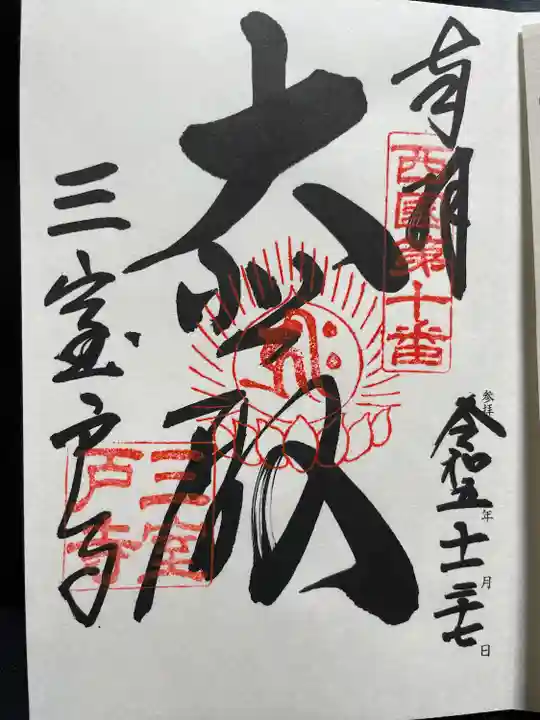 奉拝
西国第十番
参拝
令和五年十一月二十七日
大悲殿
三室戸寺
三室戸寺